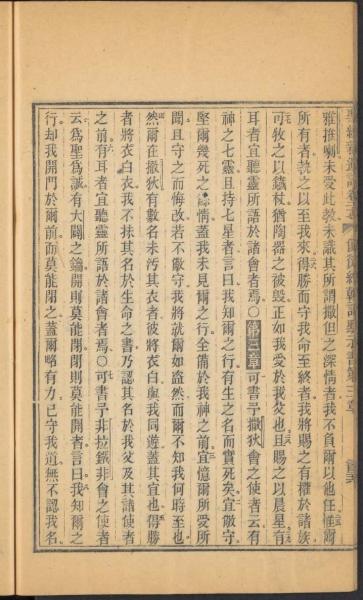 雅推喇未受此敎未識其所謂撒但之深情者我不負爾以他任惟爾
所有者執之以至我來得勝而守我命至終者我將賜之有權於諸族
可牧之以鐵杖猶陶器之彼毀正如我愛於我父也且賜之以晨星有
耳者宜聽靈所語於諸會者焉○第三章可書予撒狄會之使者云有
神之七靈且持七星者言曰我知爾之行有生之名而實死矣宜儆守
堅爾幾死之情蓋我未見爾之行全備於我神之前宜憶爾所受所
聞且守之而悔改若不儆守我將就爾如盜然而爾不知我何時至也
然爾在撒狄有數名未污其衣者彼將衣白與我同遊蓋其宜也得勝
者將衣白衣我不抹其名於生命之書乃認其名於我父及其諸使者
之前有耳者宜聽靈所語於諸會者焉○可書予非拉鐵非會之使者
云爲聖爲誠有大闢之鑰開則莫能閉閉則莫能開者言曰我知爾之
行却我開門於爾前而莫能閉之蓋爾略有力已守我道無不認我名